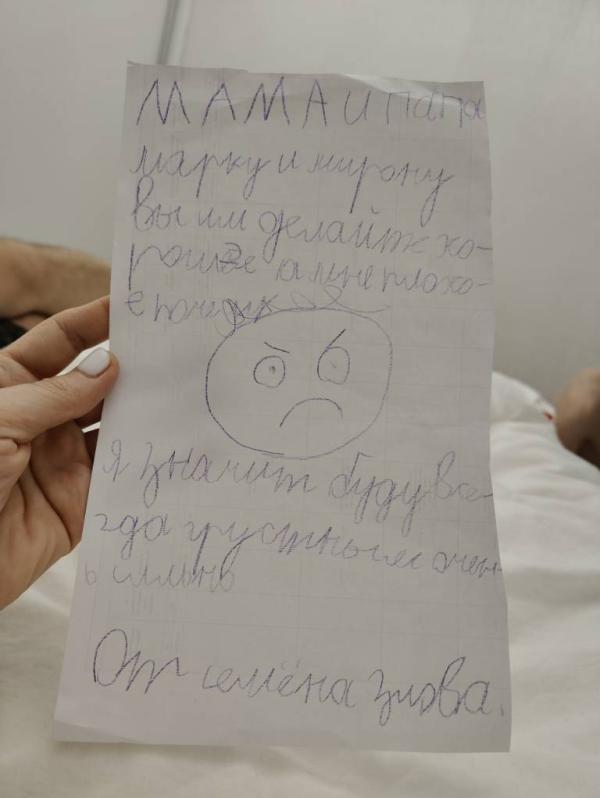 МАМА И ПаПа
марку и мирону
вы им делайте хо-
рошее а мне плохо-
е
я значит буду все-
гда грустным очен-
ь
От семёна злова.